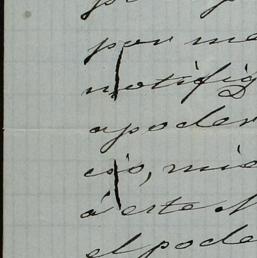 por me
notifiq
apoder
cio, mie
á este N
el pode